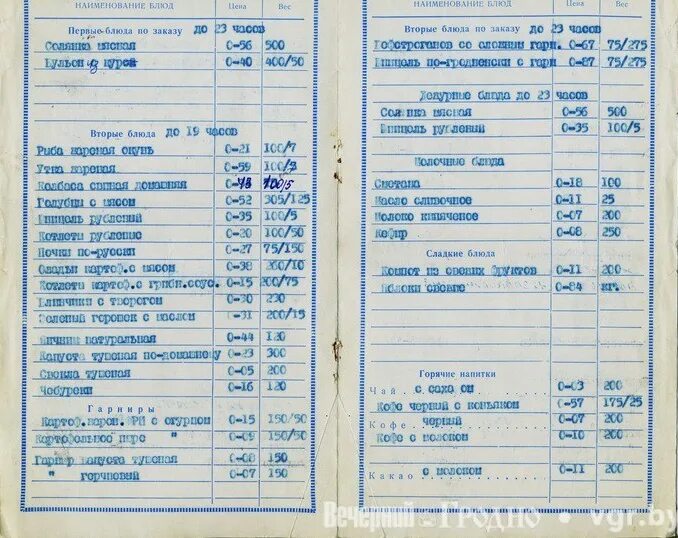 НАИМЕНОВАНИЕ БЛЮД Цена Вес
Первые блюда по заказу до 23 часов
Солянка мясная 0-56 500
Бульон с курой 0-40 400/50
Вторые блюда до 19 часов
Рыба жареная окунь 0-21 100/7
Утка жареная 0-59 100/3
Колбаса свиная домашняя 100/5
Голубцы с мясом 0-52 305/125
Шницель рубленый 0-35 100/5
Котлеты рубленые 0-20 100/50
Почки по-русски 0-27 75/150
Оладьи картоф.с мясом 0-38 200/10
Котлеты картоф.с грибн.соус. 0-15 200/75
Блинчики с творогом 0-30 230
Зеленый горошек с маслом 0-31 200/15
натуральная 0-44 120
Капуста тушеная по-домашнему 0-23 300
Свекла тушеная 0-05 200
Чебуреки 0-16 120
Гарниры
Картоф.жарен. с огурцом 0-15 150/50
Картофельное пюре " 0-09 150/50
Гарнир капуста тушеная 0-08 150
" гречневый 0-07 150
НАИМЕНОВАНИЕ БЛЮД Цена Вес
Вторые блюда по заказу до 23 часов
Бефстроганов со сложным гарн. 0-67 75/275
Шницель по-гродненски с гарн 0-87 75/275
Дежурные блюда до 23 часов
Солянка мясная 0-56 500
Шницель рубленый 0-35 100/5
Молочные блюда
Сметана 0-18 100
Масло сливочное 0-11 25
Молоко кипяченое 0-07 200
Кефир 0-08 250
Сладкие блюда
Компот из свежих фруктов 0-11 200
Яблоки свежие 0-84 кг.
Горячие напитки
Чай с сахаром 0-03 200
Кофе черный с коньяком 0-57 175/25
Кофе черный 0-07 200
Кофе с молоком 0-10 200
Какао с молоком 0-11 200
Вечерний Гродно • vgr.by